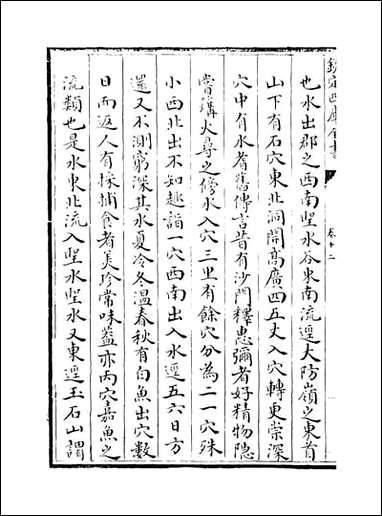 欽定四庫全書
卷十二
也水出郡之西南聖水谷東南流逕大防嶺之東首
山下有石穴東北洞開高廣四五丈入穴轉更崇深
穴中有水耆舊傳言昔有沙門釋惠彌者好精物隱
嘗火尋之傍水入穴三里有餘穴分為二一穴殊
小西北出不知趣詣一穴西南出入水逕五六日方
還又不測窮深其水夏冷冬溫春秋有白魚出穴數
日而返人有採捕食者美珍常味蓋亦丙穴嘉魚之
流類也是水東北流入聖水聖水又東逕玉石山謂